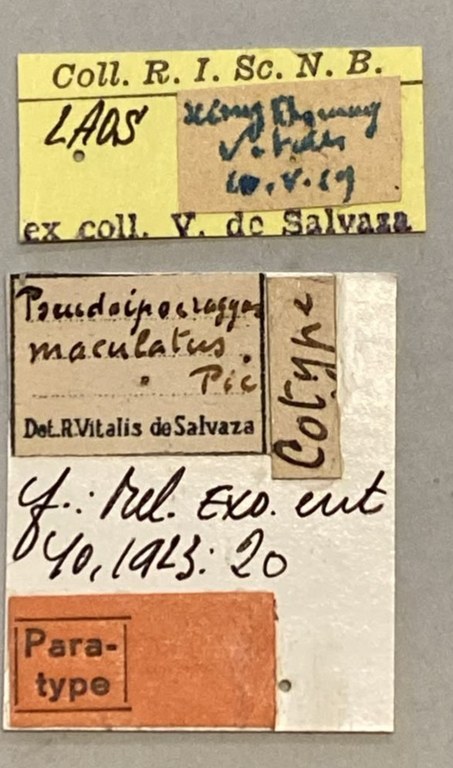 Coll. R. I. Sc. N. B.
LAOS
Xieng Khouang
Vitalis
10.V.19
ex coll. V. de Salvaza
maculatus.
Pic
Det. R. Vitalis de Salvaza
Cotype
cf.: Mel. Exo. ent
40, 1923: 20
Para-
type